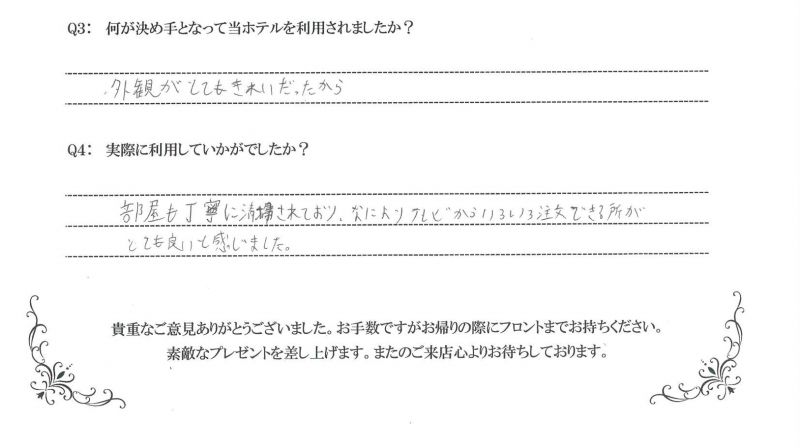 Q3: 何が決め手となって当ホテルを利用されましたか？
外観がとてもきれいだったから
Q4: 実際に利用していかがでしたか？
部屋も丁寧に清掃されており、なによりテレビからいろいろ注文できる所が
とても良いと感じました。
貴重なご意見ありがとうございました。お手数ですがお帰りの際にフロントまでお持ちください。
素敵なプレゼントを差し上げます。またのご来店心よりお待ちしております。